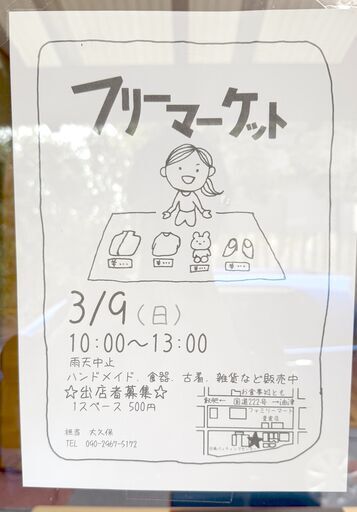 フリーマーケット
3/9(日)
10:00〜13:00
雨天中止
ハンドメイド、食器、古着、雑貨など販売中
☆出店者募集☆
1スペース 500円
担当 大久保
TEL 090-2967-5172
お食事処とも
飫肥← 国道222号 →油津
ファミリーマート